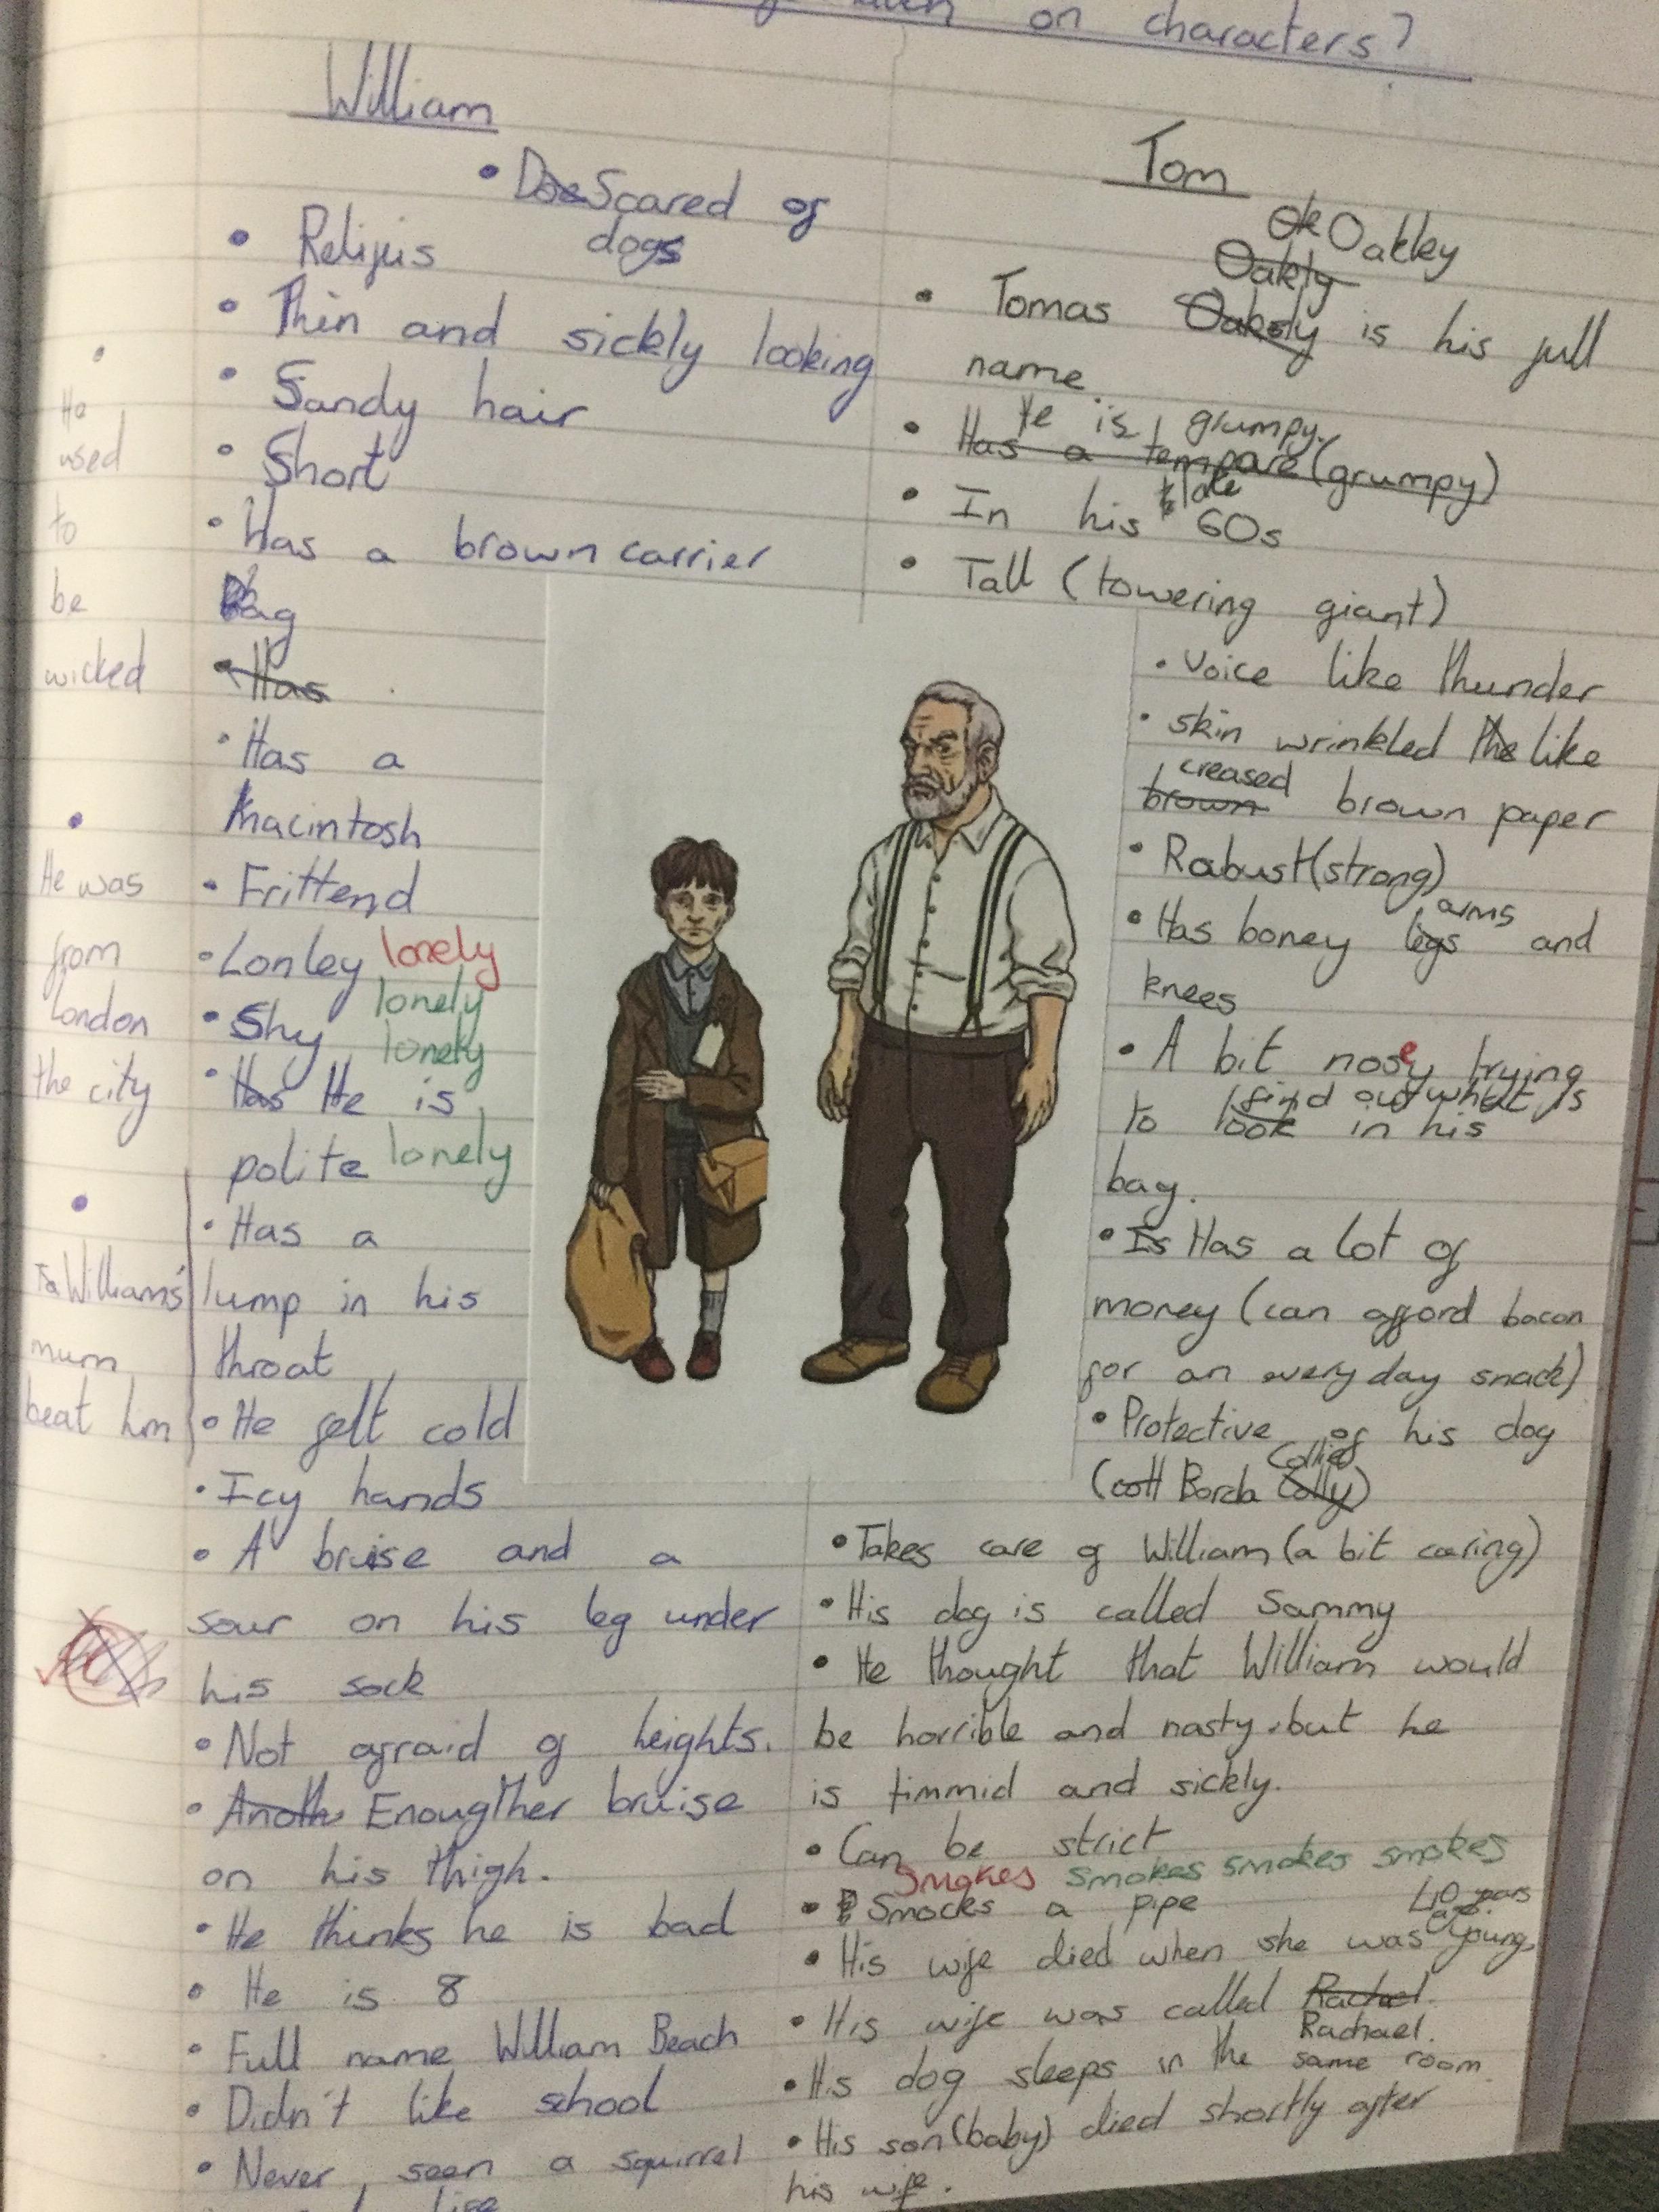 on characters?
William
• Scared of
dogs
• Relijis
• Thin and sickly looking
• Sandy hair
• Short
• Has a brown carrier
bag
• Has
• Has a
macintosh
• Frittend
• Lonley lonely
lonely
• Shy
lonely
• Has He is
polite lonely
• Has a
lump in his
throat
• He felt cold
• Icy hands
• A bruise and a
sour on his leg under
his sock
• Not afraid of heights.
• Anoth Enougther bruise
on his thigh.
• He thinks he is bad
• He is 8
• Full name William Beach
• Didn't like school
• Never seen a squirrel
•
He
used
to
be
wicked
•
He was
from
London
the city
•
Williams'
mum
beat him
Tom
Ok Oakley
Oakly
• Tomas Oaksly is his full
name
He is grumpy.
• Has a tempare (grumpy)
late
• In his 60s
• Tall (towering giant)
• Voice like thunder
• skin wrinkled the like
creased
brown brown paper
• Rabust (strong)
arms
• Has boney legs and
knees
• A bit nosey trying
find out what is
to look in his
bag.
• Is Has a lot of
money (can afford bacon
for an every day snack)
• Protective of his dog
Collief
(cott Borda Colly)
• Takes care of William (a bit caring)
• His dog is called Sammy
• He thought that William would
be horrible and nasty but he
is timmid and sickly.
• Can be strict
smokes smokes smokes smokes
• Smocks a pipe
40 years
ago.
• His wife died when she was young,
• His wife was called Rachel.
Rachael.
• His dog sleeps in the same room.
• His son (baby) died shortly after
his wife.